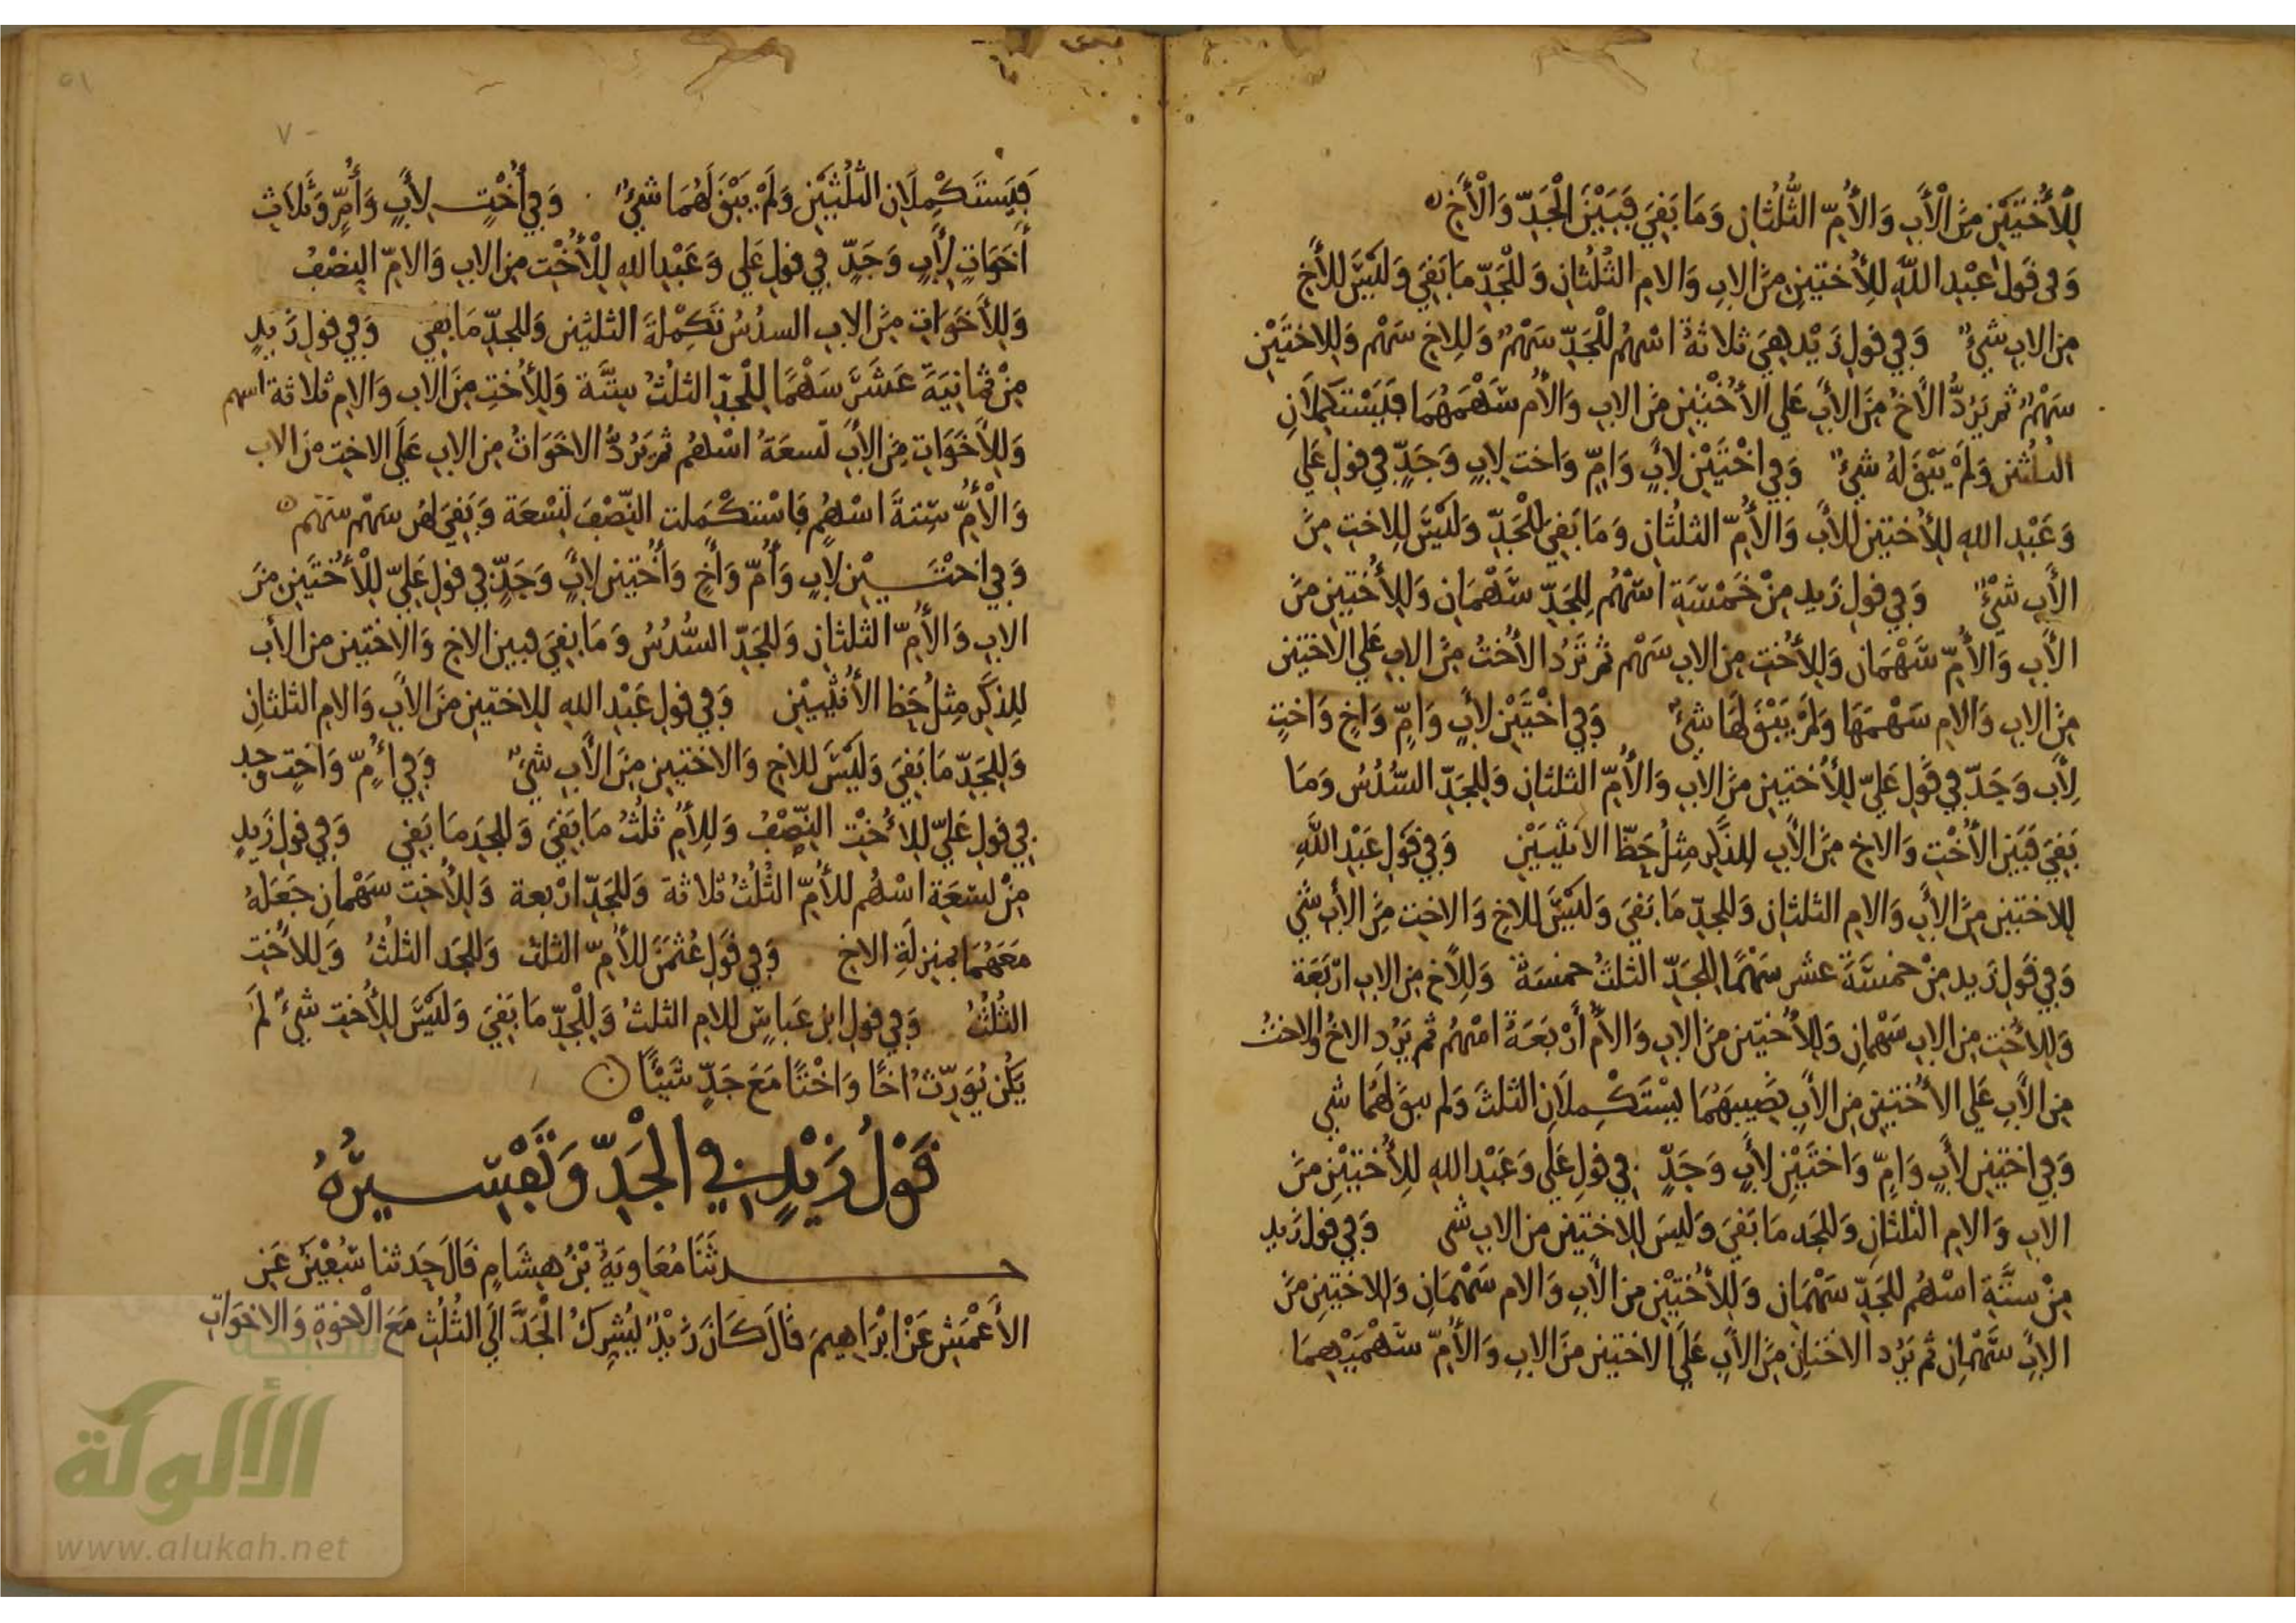 لِلْأُخْتَيْنِ مِنَ الْأَبِ وَالْأُمِّ الثُّلُثَانِ وَمَا بَقِيَ فَبَيْنَ الْجَدِّ وَالْأَخِ
وَفِي قَوْلِ عَبْدِ اللهِ لِلأُختَينِ مِنَ الابِ وَالامِ الثُلُثانِ وَلِلْجَدِّ مَا بَقِيَ وَلَيْسَ لِلأَخِ
مِنَ الابِ شَيْءٌ وَفِي قَوْلِ زَيْدٍ هِيَ ثلاثةُ اسْهُمٍ لِلْجَدِّ سَهْمٌ وَلِلاخِ سَهْم وَلِلاختَيْنِ
سَهْمٌ ثم يَرُدُّ الأَخُ مِنَ الأَبِ عَلَى الأُخْتَيْنِ مِنَ الابِ وَالأُم سَهْمَهُمَا فَيَسْتَكمِلَانِ
الثلثين وَلَمْ يَبْقَ لهُ شيْءٌ وَفِي اخْتَيْنِ لِابٍ وَامٍّ وَاخت لِابٍ وَجَدٍّ فِي قولِ عَلي
وَعَبْدِ اللهِ لِلأُختين لِلأَب وَالأُمِّ الثلثان وَمَا بَقِيَ لِلْجَدِّ وَلَيْسَ لِلاختِ مِنَ
الأَبِ شَيْءٌ وَفِي قولِ زَيدٍ مِنْ خَمْسَةِ اسْهُم لِلجَدِّ سَهْمَانِ وَلِلأُختَينِ مِنَ
الأَبِ وَالأُمِّ سَهْمَانِ وَلِلأُختِ مِنَ الابِ سَهْم ثم تَرُد الأُختُ مِنَ الابِ عَلي الاختين
مِنَ الابِ وَالامِ سَهْمَهَا وَلَمْ يَبْقَ لَهَا شيْءٌ وَفِي اخْتَيْنِ لِأَبٍ وَامٍّ وَاخٍ وَاختٍ
لِأَب وَجَدّ فِي قَوْلِ عَلِيّ لِلأُختينِ مِنَ الابِ وَالأُمِّ الثلثانِ وَلِلجَدِّ السُّدُسُ وَمَا
بَقِيَ فَبَيْنَ الأُخْتِ وَالاخِ مِنَ الأَبِ لِلذَّكَرِ مِثلُ حَظِّ الانثيَيْنِ وَفِي قَوْلِ عَبْدِ اللَّهِ
لِلاختين مِنَ الأَبِ وَالامِ الثلثانِ وَلِلجدِّ مَا بَقيَ وَلَيْسَ لِلاخِ وَالاختِ مِنَ الأَبِ شَي
وَفِي قَوْلِ زَيدٍ مِنْ خمسَةَ عشرَ سَهْمًا لِلجَدِّ الثلثُ خمسَةٌ وَلِلأَخِ مِنَ الابِ ارْبَعَة
وَلِلأُختِ مِنَ الابِ سَهْمانِ وَلِلأُختَينِ مِنَ الابِ وَالأُمِّ أَرْبَعَةُ اسْهُم ثم يَرُد الاخُ وَالاختُ
مِنَ الأَبِ عَلي الأُختَينِ مِنَ الأَبِ نَصِيبَهُمَا يَسْتَكْمِلَانِ الثلثَ وَلم يبقَ لَهُمَا شي
وَفِي اختَينِ لِأَبٍ وَامٍّ وَاختَيْنِ لِأَبٍ وَجَدٍّ فِي قولِ عَلي وَعَبْدِ اللهِ لِلأُختَيْنِ مِنَ
الابِ وَالامِ الثلثانِ وَلِلجَد مَا بَقيَ وَلَيسَ لِلاختين مِنَ الابِ شي وَفِي قول زَيد
مِنْ سِتَّةِ اسْهُم لِلجَدِّ سَهْمَانِ وَلِلأُختَيْنِ مِنَ الأَبِ وَالام سَهْمَانِ وَلِلاختينِ مِنَ
الابِ سَهْمَانِ ثم تَرُد الاختانِ مِنَ الأَبِ عَلَي الاختينِ مِنَ الابِ وَالأُمِّ سَهْمَيْهِمَا
فَيَسْتَكْمِلَانِ الثُلُثَيْنِ وَلَمْ يَبْقَ لَهُمَا شيْءٌ وَفِي أُخْتٍ لِأَبٍ وَأُمٍّ وَثَلَاثِ
أَخَوَاتٍ لِأَبٍ وَجَدٍّ فِي قولِ عَلي وَعَبْدِ اللهِ لِلْأُخْتِ مِنَ الابِ وَالامِّ النِصْفُ
وَلِلأَخَوَاتِ مِنَ الابِ السدُسُ تَكمِلةَ الثلثين وَلِلجدِّ مَا بَقي وَفِي قولِ زَيدٍ
مِنْ ثمَانِيَةَ عَشَرَ سَهْمًا لِلْجدِّ الثلثُ سِتَّة وَلِلأُختِ مِنَ الاب وَالامِ ثلاثة اسهم
وَلِلأَخَوَاتِ مِنَ الأَبِ تسعَةُ اسْهُم ثم يَرُدُّ الاخَوَاتُ مِنَ الابِ عَلَى الاختِ مِنَ الاب
وَالْأُمِّ سِتةَ اسْهُمٍ فَاسْتكْمَلت النِّصْفَ تِسْعَة وَبَقِيَ لَهُن سَهْم سَهْم
وَفِي اخْتَيْنِ لِابٍ وَأُمٍّ وَأَخٍ وَأُخْتين لِأَبٍ وَجَدٍّ فِي قولِ عَلِيّ لِلْأُخْتَيْنِ مِنَ
الابِ وَالأُمِّ الثلثانِ وَلِلجَدِّ السُّدُسُ وَمَا بقِيَ فبين الاخِ وَالاختين من الأب
لِلذَّكَرِ مِثلُ حَظِ الأُنثَيَيْنِ وَفِي قولِ عَبْدِ اللهِ لِلاختينِ مِنَ الأَبِ وَالامِ الثلثانِ
وَلِلجَدِّ مَا بَقيَ وَلَيْسَ لِلاخِ وَالاختين مِنَ الأَبِ شيْءٌ وَفِي أُمٍّ وَاختٍ وجد
فِي قولِ عَلِيّ لِلأُخْتِ النِّصْفُ وَلِلأُمِّ ثلُثُ مَا بَقَيَ وَلِلجَدِ مَا بَقي وَفِي قولِ زَيدٍ
مِنْ تسعَةِ اسْهُم لِلأُمِّ الثُلُثُ ثلاثة وَلِلجَدِّ ارْبعة وَلِلأُختِ سَهْمانِ جَعَلهُ
مَعَهُمَا بمنزِلَةِ الاخِ وَفِي قَولِ عُثمَنَ لِلأُمِّ الثلث وَلِلجَد الثلثُ وَلِلأُخْتِ
الثلثُ وَفِي قولِ ابنِ عَبَاسٍ لِلامِ الثلثُ وَلِلْجدِّ مَا بَقَيَ وَلَيْسَ لِلأُختِ شيْءٌ لَمْ
يَكُنْ يُوَرِّثُ اخًا وَاخْتًا مَعَ جَدٍّ شَيْئًا
قَوْلُ زَيْدٍ فِي الْجَدِّ وَتَفْسِيرُهُ
حدثَنَا مُعَاوِيَةُ بْنُ هِشَامٍ قَالَ حَدثنا سُفْيَنُ عَنِ
الأَعْمَشِ عَنْ ابْرَاهِيمَ قَالَ كَانَ زَيْدٌ يُشرِكُ الْجَدَّ الَي الثُلُثِ مَعَ الْاخوَةِ وَالاخوَاتِ
شبكة
الألوكة
www.alukah.net